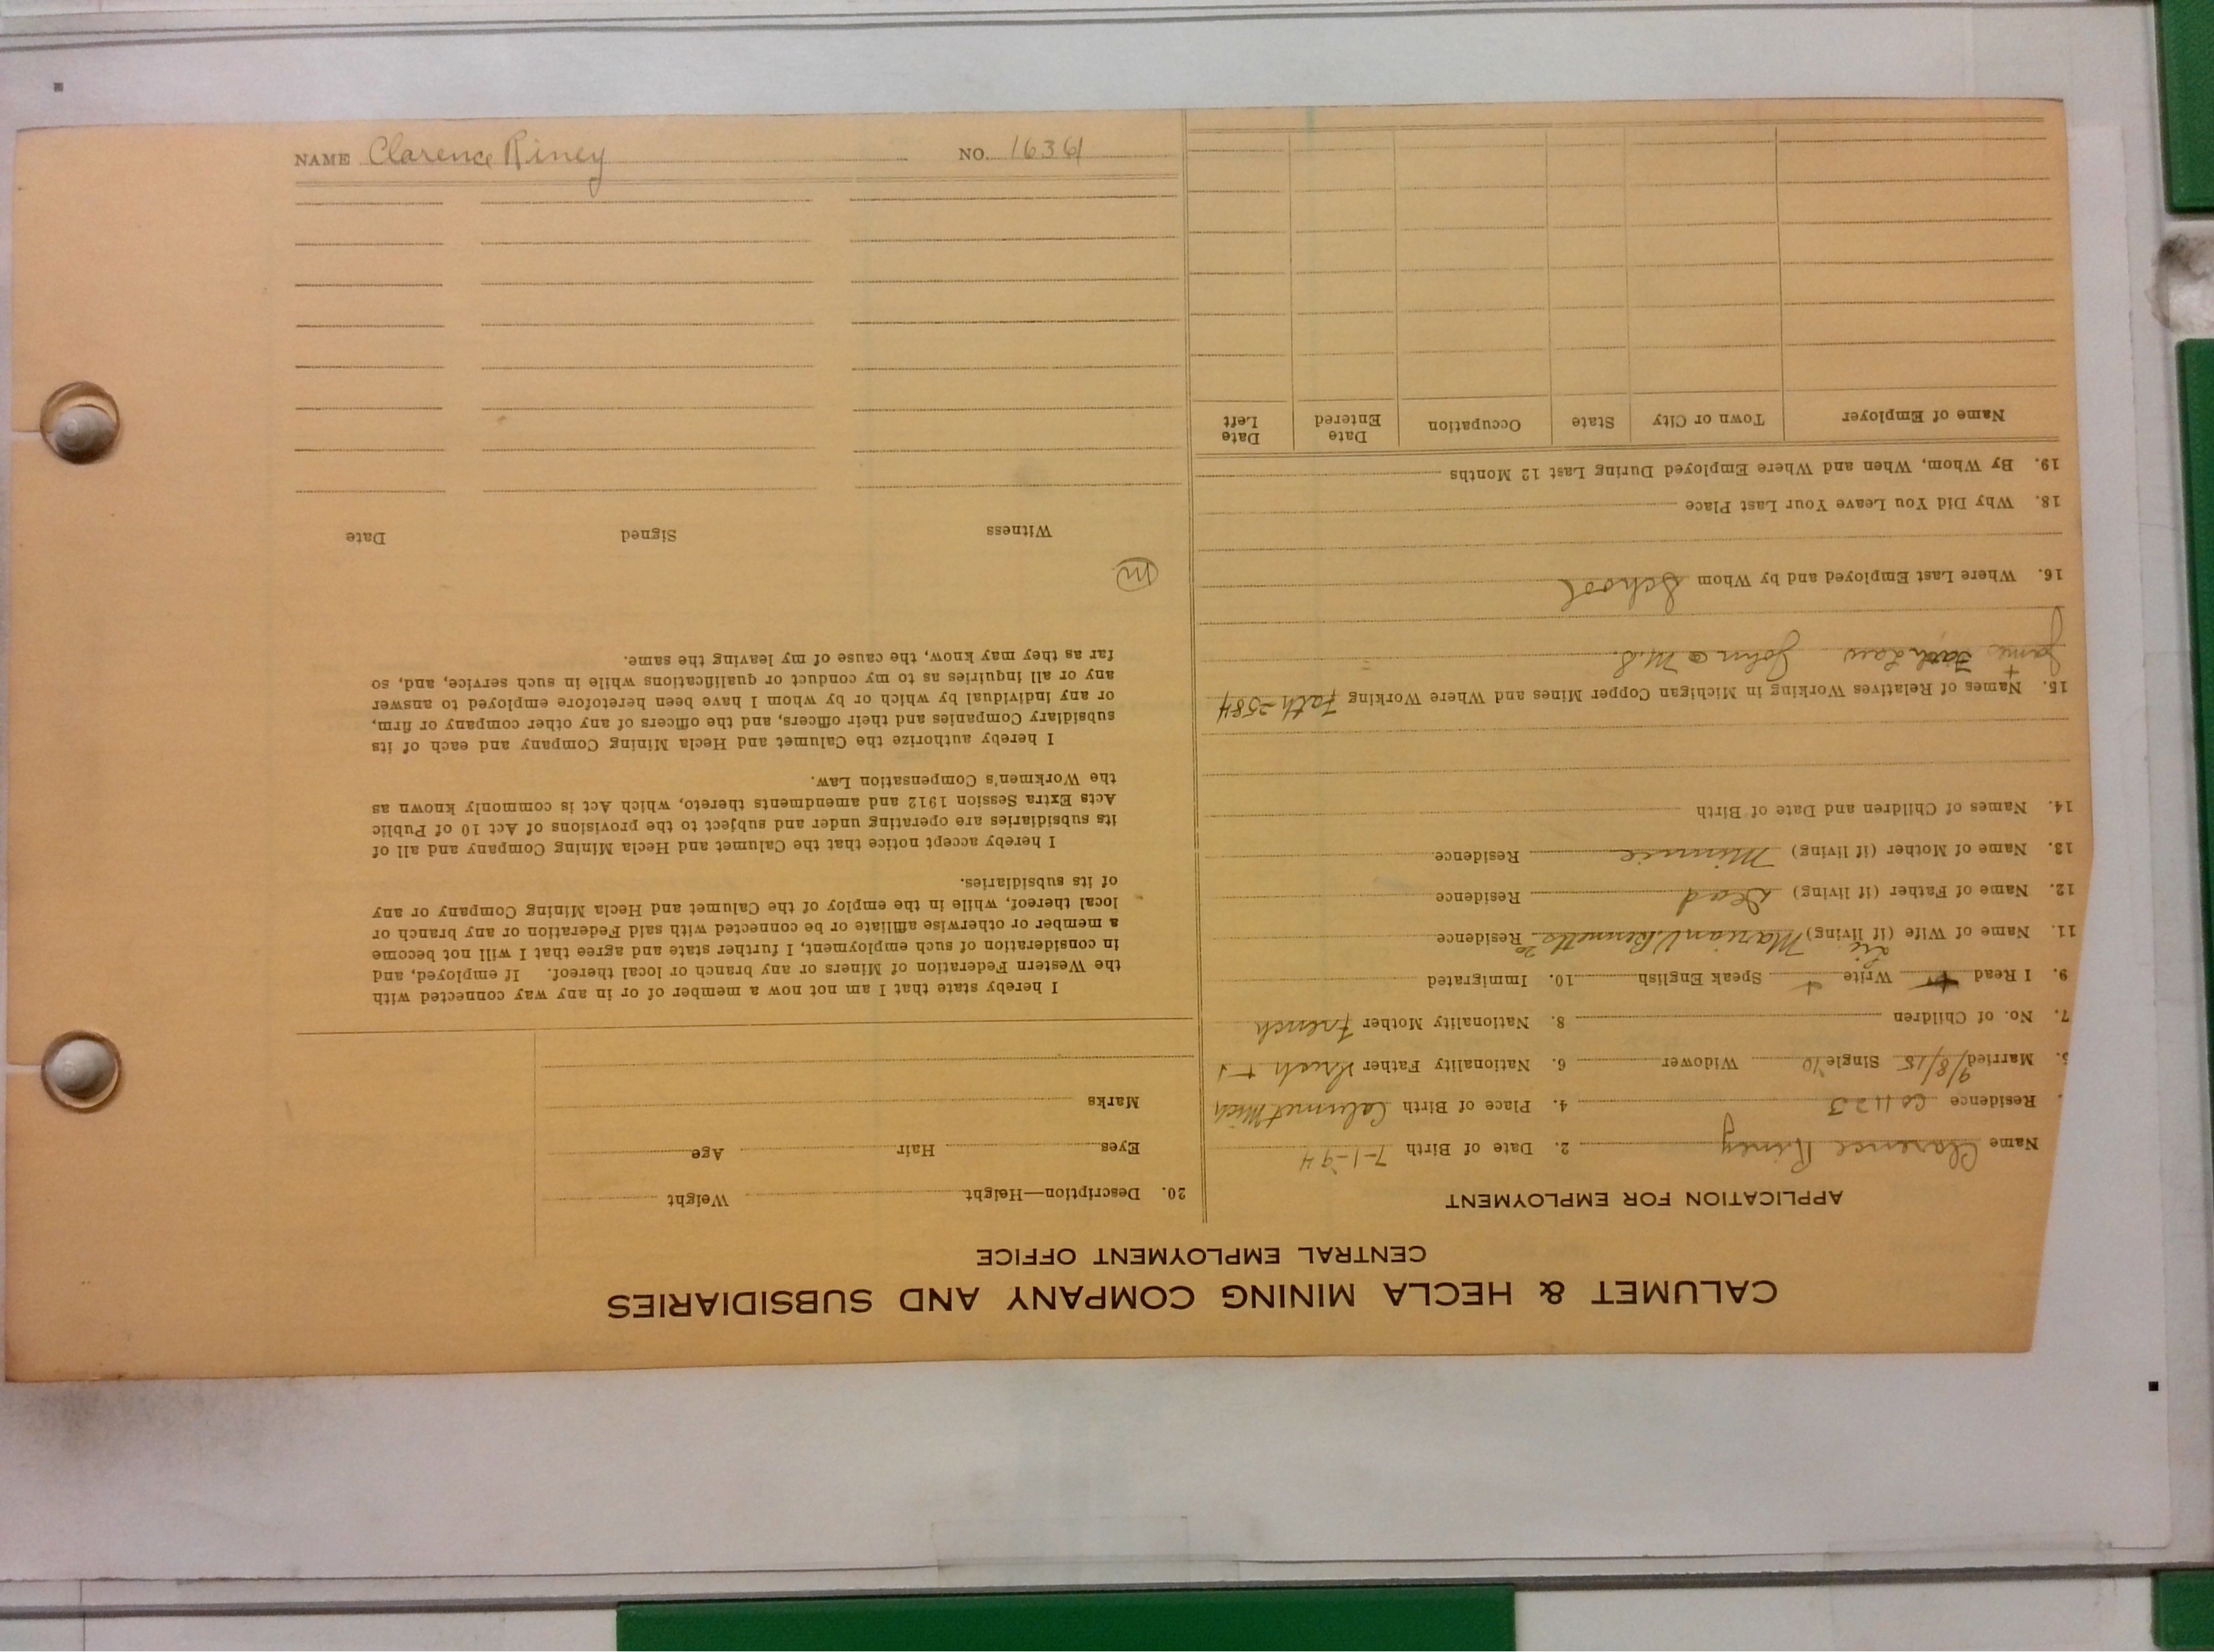 NAME Clarence Riney NO. 16361
CALUMET & HECLA MINING COMPANY AND SUBSIDIARIES
CENTRAL EMPLOYMENT OFFICE
APPLICATION FOR EMPLOYMENT
Name Clarence Riney 2. Date of Birth 7-1-94
Residence Co H23 4. Place of Birth Calumet Mich
5. Married 9/8/15 Single Widower 6. Nationality Father Irish
7. No. of Children 8. Nationality Mother French
9. I Read Write Speak English 10. Immigrated
11. Name of Wife (if living) Marian V. Bennetts Residence
12. Name of Father (if living) Dead Residence
13. Name of Mother (if living) Minnie Residence
14. Names of Children and Date of Birth
15. Names of Relatives Working in Michigan Copper Mines and Where Working Fath-2584
James Law John M.S.
16. Where Last Employed and by Whom School
18. Why Did You Leave Your Last Place
19. By Whom, When and Where Employed During Last 12 Months
Name of Employer Town or City State Occupation Date Entered Date Left
20. Description—Height Weight
Eyes Hair Age
Marks
I hereby state that I am not now a member of or in any way connected with
the Western Federation of Miners or any branch or local thereof. If employed, and
in consideration of such employment, I further state and agree that I will not become
a member or otherwise affiliate or be connected with said Federation or any branch or
local thereof, while in the employ of the Calumet and Hecla Mining Company or any
of its subsidiaries.
I hereby accept notice that the Calumet and Hecla Mining Company and all of
its subsidiaries are operating under and subject to the provisions of Act 10 of Public
Acts Extra Session 1912 and amendments thereto, which Act is commonly known as
the Workmen's Compensation Law.
I hereby authorize the Calumet and Hecla Mining Company and each of its
subsidiary Companies and their officers, and the officers of any other company or firm,
or any individual by which or by whom I have been heretofore employed to answer
any or all inquiries as to my conduct or qualifications while in such service, and, so
far as they may know, the cause of my leaving the same.
m
Witness Signed Date